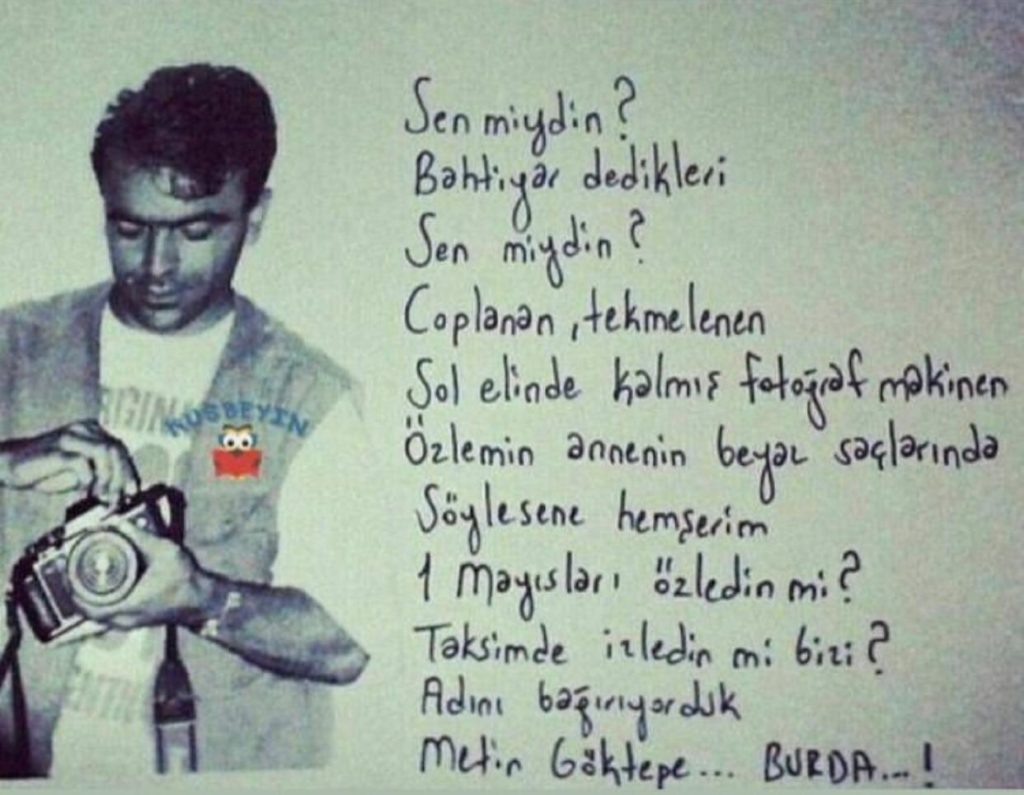 Sen miydin?
Bahtiyar dedikleri
Sen miydin?
Coplanan, tekmelenen
Sol elinde kalmış fotoğraf makinen
Özlemin annenin beyaz saçlarında
Söylesene hemşerim
1 Mayısları özledin mi?
Taksimde izledin mi bizi?
Adını bağırıyorduk
Metin Göktepe... BURDA...!
KUŞBEYİN